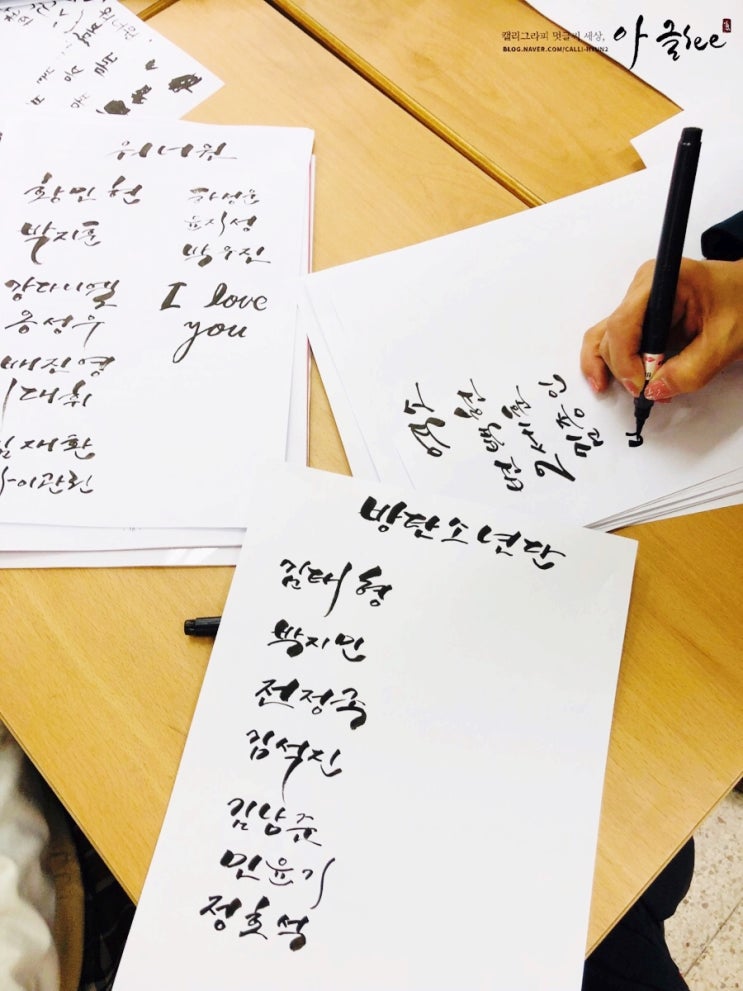 캘리그라피 멋글씨 세상,
아 글see
BLOG.NAVER.COM/CALLI-HYUN2
워너원
황민현
박지훈
강다니엘
옹성우
배진영
이대휘
김재환
이관린
하성운
윤지성
박우진
I love
you
엑소
변백현
오세훈
방탄소년단
김태형
박지민
전정국
김석진
김남준
민윤기
정호석